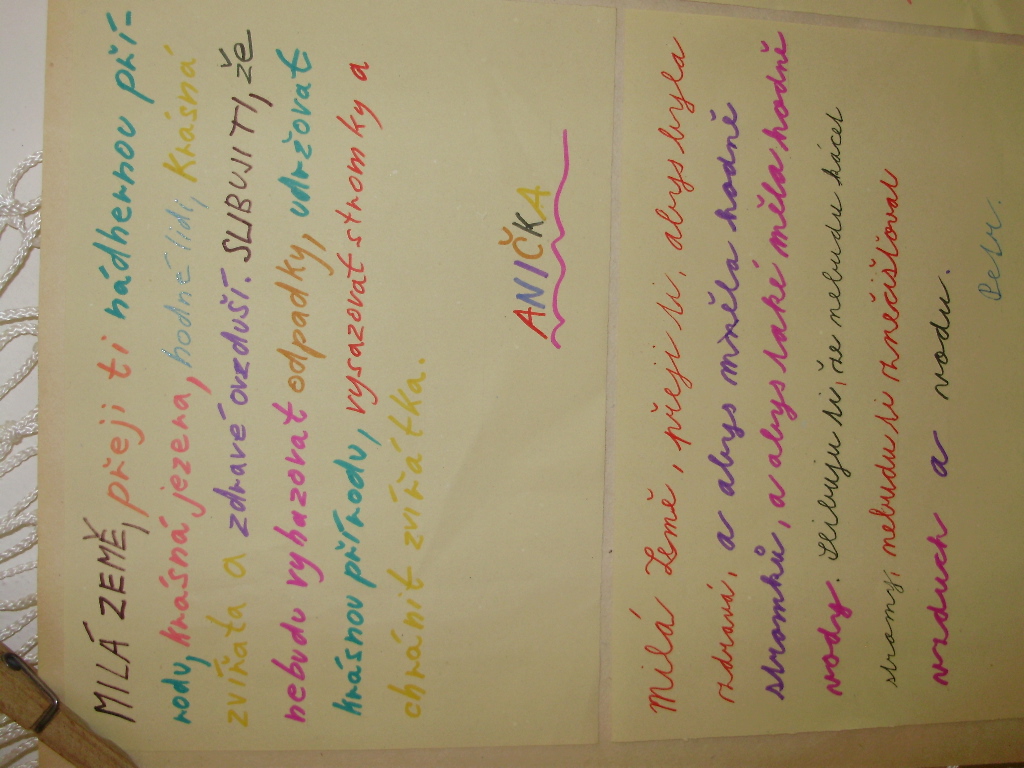 MILÁ ZEMĚ, přeji ti nádhernou pří-
rodu, krásná jezera, hodné lidi, krásná
zvířata a zdravé ovzduší. SLIBUJI TI, že
nebudu vyhazovat odpadky, udržovat
krásnou přírodu, vysazovat stromky a
chránit zvířátka.
ANIČKA
Milá Země, přeji ti, abys byla
zdravá, a abys měla hodně
stromků, a abys také měla hodně
vody. Slibuju ti, že nebudu kácet
stromy, nebudu ti znečišťovat
vzduch a vodu.
Petr.